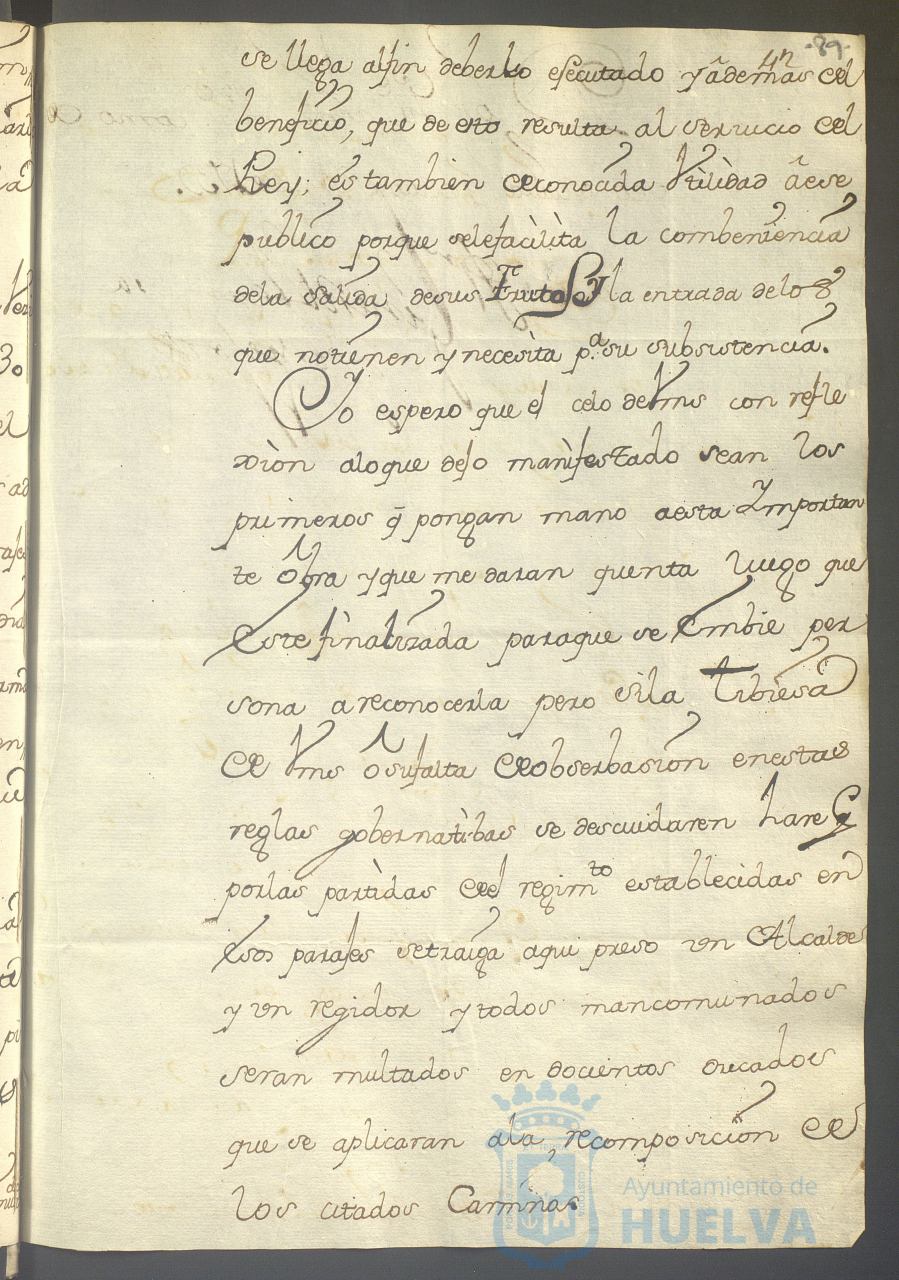 -89-
4n
se llega alfin deberlo ejecutado y ademas del
beneficio, que de esto resulta al servicio del
Rey; es tambien de conocida Vtilidad â ese
publico porque selefacilita la combeniencia
dela salida desus Frutos y la entrada delos
que notienen y necesita p.ª su subsistencia.
Yo espero que el celo deVms con refle
xion aloque dejo manifestado sean los
primeros q̃ pongan mano aesta Ymportan
te Obra y que me daran quenta luego que
Este finalizada paraque se Embie per
sona a reconocerla pero sila tibiesa
de Vms o sufalta de observasion enestas
reglas gobernatibas se descuidaren hare q
porlas partidas del regim.to establecidas en
Esos parajes setraiga aqui preso vn Alcalde
y vn regidor y todos mancomunados
seran multados en docientos ducados
que se aplicaran ala recomposicion de
los citados Caminos.
Ayuntamiento de
HUELVA